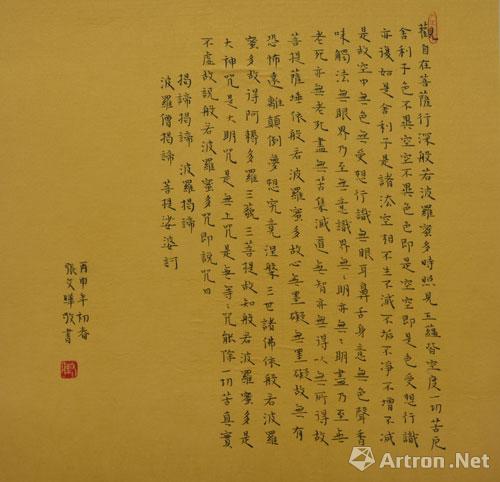 觀自在菩薩行深般若波羅蜜多時照見五蘊皆空度一切苦厄
舍利子色不異空空不異色色即是空空即是色受想行識
亦復如是舍利子是諸法空相不生不滅不垢不淨不增不減
是故空中無色無受想行識無眼耳鼻舌身意無色聲香
味觸法無眼界乃至無意識界無無明亦無無明盡乃至無
老死亦無老死盡無苦集滅道無智亦無得以無所得故
菩提薩埵依般若波羅蜜多故心無罣礙無罣礙故無有
恐怖遠離顛倒夢想究竟涅槃三世諸佛依般若波羅
蜜多故得阿耨多羅三藐三菩提故知般若波羅蜜多是
大神咒是大明咒是無上咒是無等等咒能除一切苦真實
不虛故說般若波羅蜜多咒即說咒曰
揭諦揭諦 波羅揭諦
波羅僧揭諦 菩提娑婆訶
丙申年初春
張文 敬書
Artron.Net